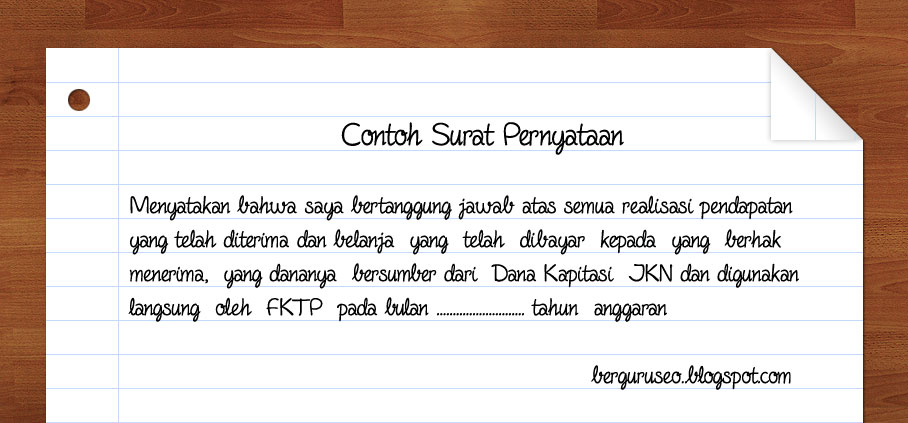 Contoh Surat Pernyataan
Menyatakan bahwa saya bertanggung jawab atas semua realisasi pendapatan
yang telah diterima dan belanja yang telah dibayar kepada yang berhak
menerima, yang dananya bersumber dari Dana Kapitasi JKN dan digunakan
langsung oleh FKTP pada bulan ........................... tahun anggaran
berguruseo.blogspot.com